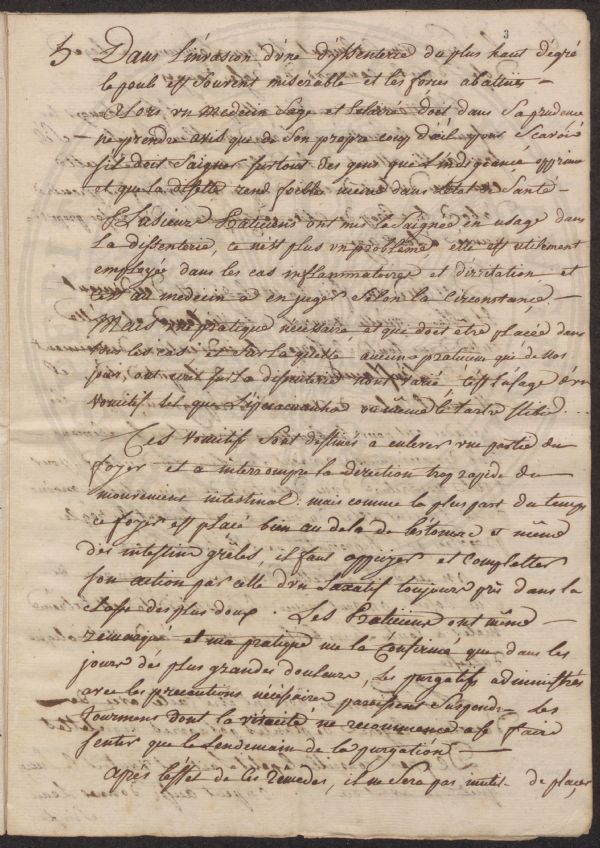 3
5 Dans l'invasion d'une dissenterie du plus haut dégré
le pouls est souvent misérable et les forces abattues —
alors un Medecin sage et éclairé doit dans sa prudence
ne prendre avis que de son propre coup d'œil pour scavoir
s'il doit saigner surtout des gens que l'indigence opprime
et que la disette rend foibles même dans l'état de santé —
Plusieurs Praticiens ont mis la saignée en usage dans
la dissenterie, ce n'est plus un problême elle est utilement
employée dans les cas inflammatoires et d'irritation et
c'est au medecin a en juger selon la circonstance. —
Mais une pratique necessaire et que doit etre placée dans
tous les cas et sur laquelle aucuns praticiens qui de nos
jours, ont ecrit sur la dissenterie n'ont varié, c'est l'usage d'un
vomitif tel que l'ipecacuanha ou même le tartre stibié...
Ces vomitifs sont destinés a enlever une partie du
foyer et a interrompre la direction trop rapide du
mouvement intestinal. mais comme la plus part du temps
ce foyer est placé bien au dela de l'estomac et même
des intestins grêles, il faut appuyer et completter
son action par celle d'un laxatif toujours pris dans la
classe des plus doux. Les Praticiens ont même —
remarqué et ma pratique me l'a confirmé que dans les
jours des plus grandes douleurs, les purgatifs administrés
avec les precautions nécéssaires paroissent suspendre les
tourmens dont la vivacité ne recommence a se faire
sentir que le lendemain de la purgation —
après l'effet de ces remedes, il ne sera pas inutile de placer